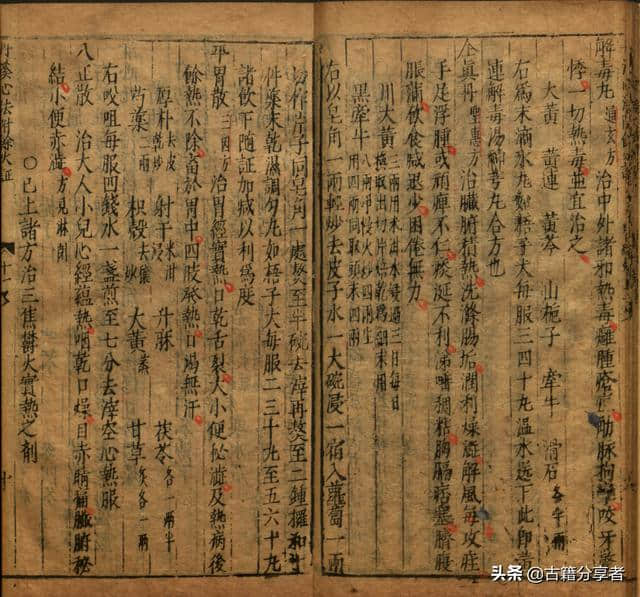 解毒丸 宣明方 治中外諸邪熱毒癰腫瘡瘍 筋脉拘攣咬牙驚
悸一切熱毒並宜治之
大黄 黄連 黄芩 山梔子 牽牛 滑石 各半兩
右為末滴水丸如梧子大每服三四十丸温水送下此即黄
連解毒湯加大丸合方也
全眞丹 聖惠方 治臓腑積熱洗滌腸垢潤利燥澁解風毒攻疰
手足浮腫或頑痺不仁痰涎不利涕嚏稠粘胸膈痞塞臍腹
脹滿飲食減退少困倦無力
川大黄 三兩用米泔水浸過三日每日
黒牽牛
右以皂角一兩輕炒去皮子水一大碗浸一宿入蘿蔔一兩
切作片子同皂角一處熬至半碗去滓再熬至二鍾攞和
件藥末乾濕調勻丸如梧子大每服二三十丸至五六十丸
諸飲下隨証加減以利為度
平胃散 三四方 治胃經實熱口乾舌裂大小便秘澁及熱病後
餘熱不除畜於胃中四肢發熱口渴無汗
厚朴 去皮乾炒 射干 米泔浸 升蔴 茯苓 各一兩半
芍藥 二兩 枳殼 去穰炒 大黄 蒸 甘草 炙各一兩
右㕮咀每服四錢水一盞煎至七分去滓空心熱服
八正散 治大人小兒心經蘊熱咽乾口燥目赤睛 臓腑秘
結小便赤澁 方見淋門
〇已上諸方治三焦鬱火實熱之劑
丹溪心法附餘火証
十
头条 @古籍分享者